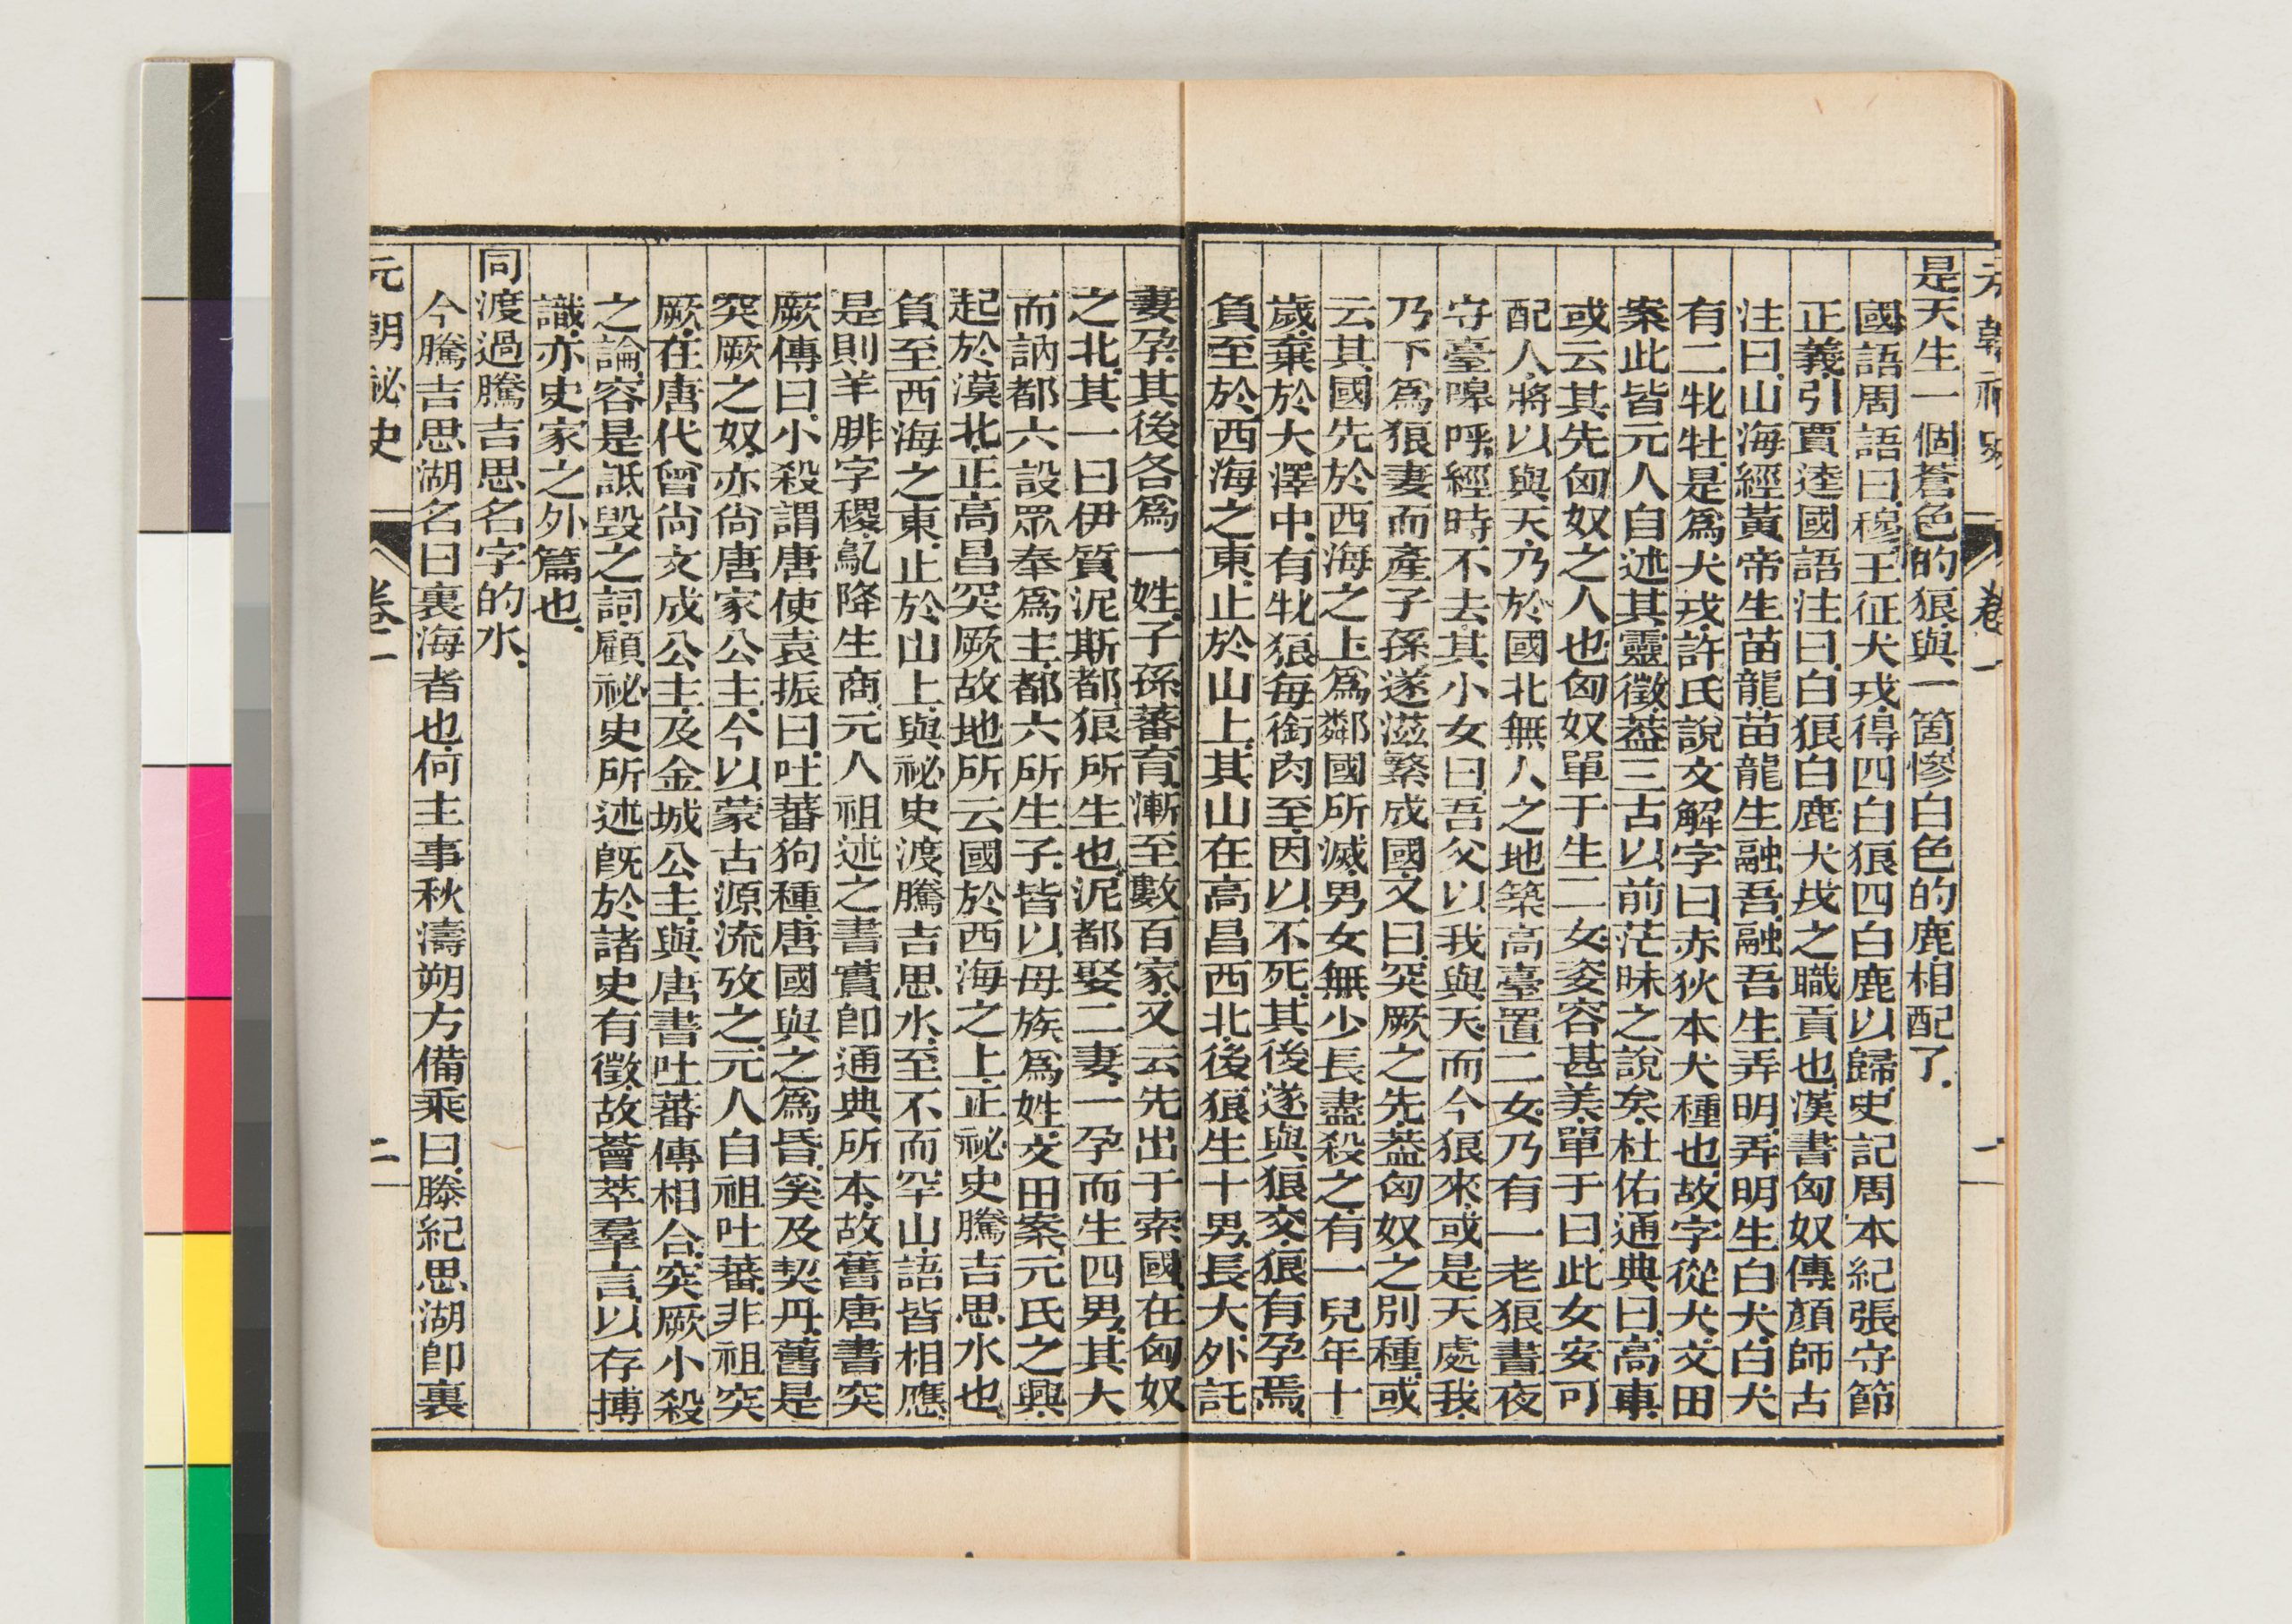 元朝祕史 卷一 一
是天生一個蒼色的狼.與一箇慘白色的鹿.相配了.
國語周語曰.穆王征犬戎.得四白狼四白鹿以歸.史記周本紀張守節
正義.引賈逵國語注曰.白狼白鹿犬戎之職貢也.漢書匈奴傳.顏師古
注曰.山海經黃帝生苗龍.苗龍生融吾.融吾生弄明.弄明生白犬.白犬
有二牝牡.是爲犬戎.許氏說文解字曰.赤狄本犬種也.故字從犬.文田
案此皆元人自述其靈徵.葢三古以前茫昧之說矣.杜佑通典曰.高車.
或云其先匈奴之人也.匈奴單于生二女.姿容甚美.單于曰.此女安可
配人.將以與天.乃於國北無人之地築高臺.置二女.乃有一老狼晝夜
守臺嘷呼.經時不去.其小女曰.吾父以我與天.而今狼來.或是天處我.
乃下爲狼妻而產子孫.遂滋繁成國.又曰.突厥之先.葢匈奴之別種.或
云其國先於西海之上.爲鄰國所滅.男女無少長盡殺之.有一兒年十
歲.棄於大澤中.有牝狼.每銜肉至.因以不死.其後遂與狼交.狼有孕焉.
負至於西海之東.止於山上.其山在高昌西北.後狼生十男.長大.外託
妻孕.其後各爲一姓.子孫蕃育.漸至數百家.又云先出于索國.在匈奴
之北.其一曰伊質泥斯都.狼所生也.泥都娶二妻.一孕而生四男.其大
而訥都六設.眾奉爲主.都六所生子.皆以母族爲姓.文田案.元氏之興.
起於漠北.正高昌突厥故地.所云國於西海之上.正祕史騰吉思水也.
負至西海之東.止於山上.與祕史渡騰吉思水.至不而罕山語皆相應.
是則羊腓字稷.鳦降生商.元人祖述之書.實卽通典所本.故舊唐書突
厥傳曰.小殺謂唐使袁振曰.吐蕃狗種.唐國與之爲昏.奚及契丹.舊是
突厥之奴.亦尙唐家公主.今以蒙古源流攷之.元人自祖吐蕃.非祖突
厥.在唐代曾尙文成公主.及金城公主.與唐書吐蕃傳相合.突厥小殺
之論.容是詆毀之詞.顧祕史所述.旣於諸史有徵.故薈萃羣言.以存摶
識.亦史家之外篇也.
同渡過騰吉思名字的水.
今騰吉思湖名曰裏海者也.何主事秋濤朔方備乘曰.滕紀思湖卽裏
元朝祕史 卷一 二